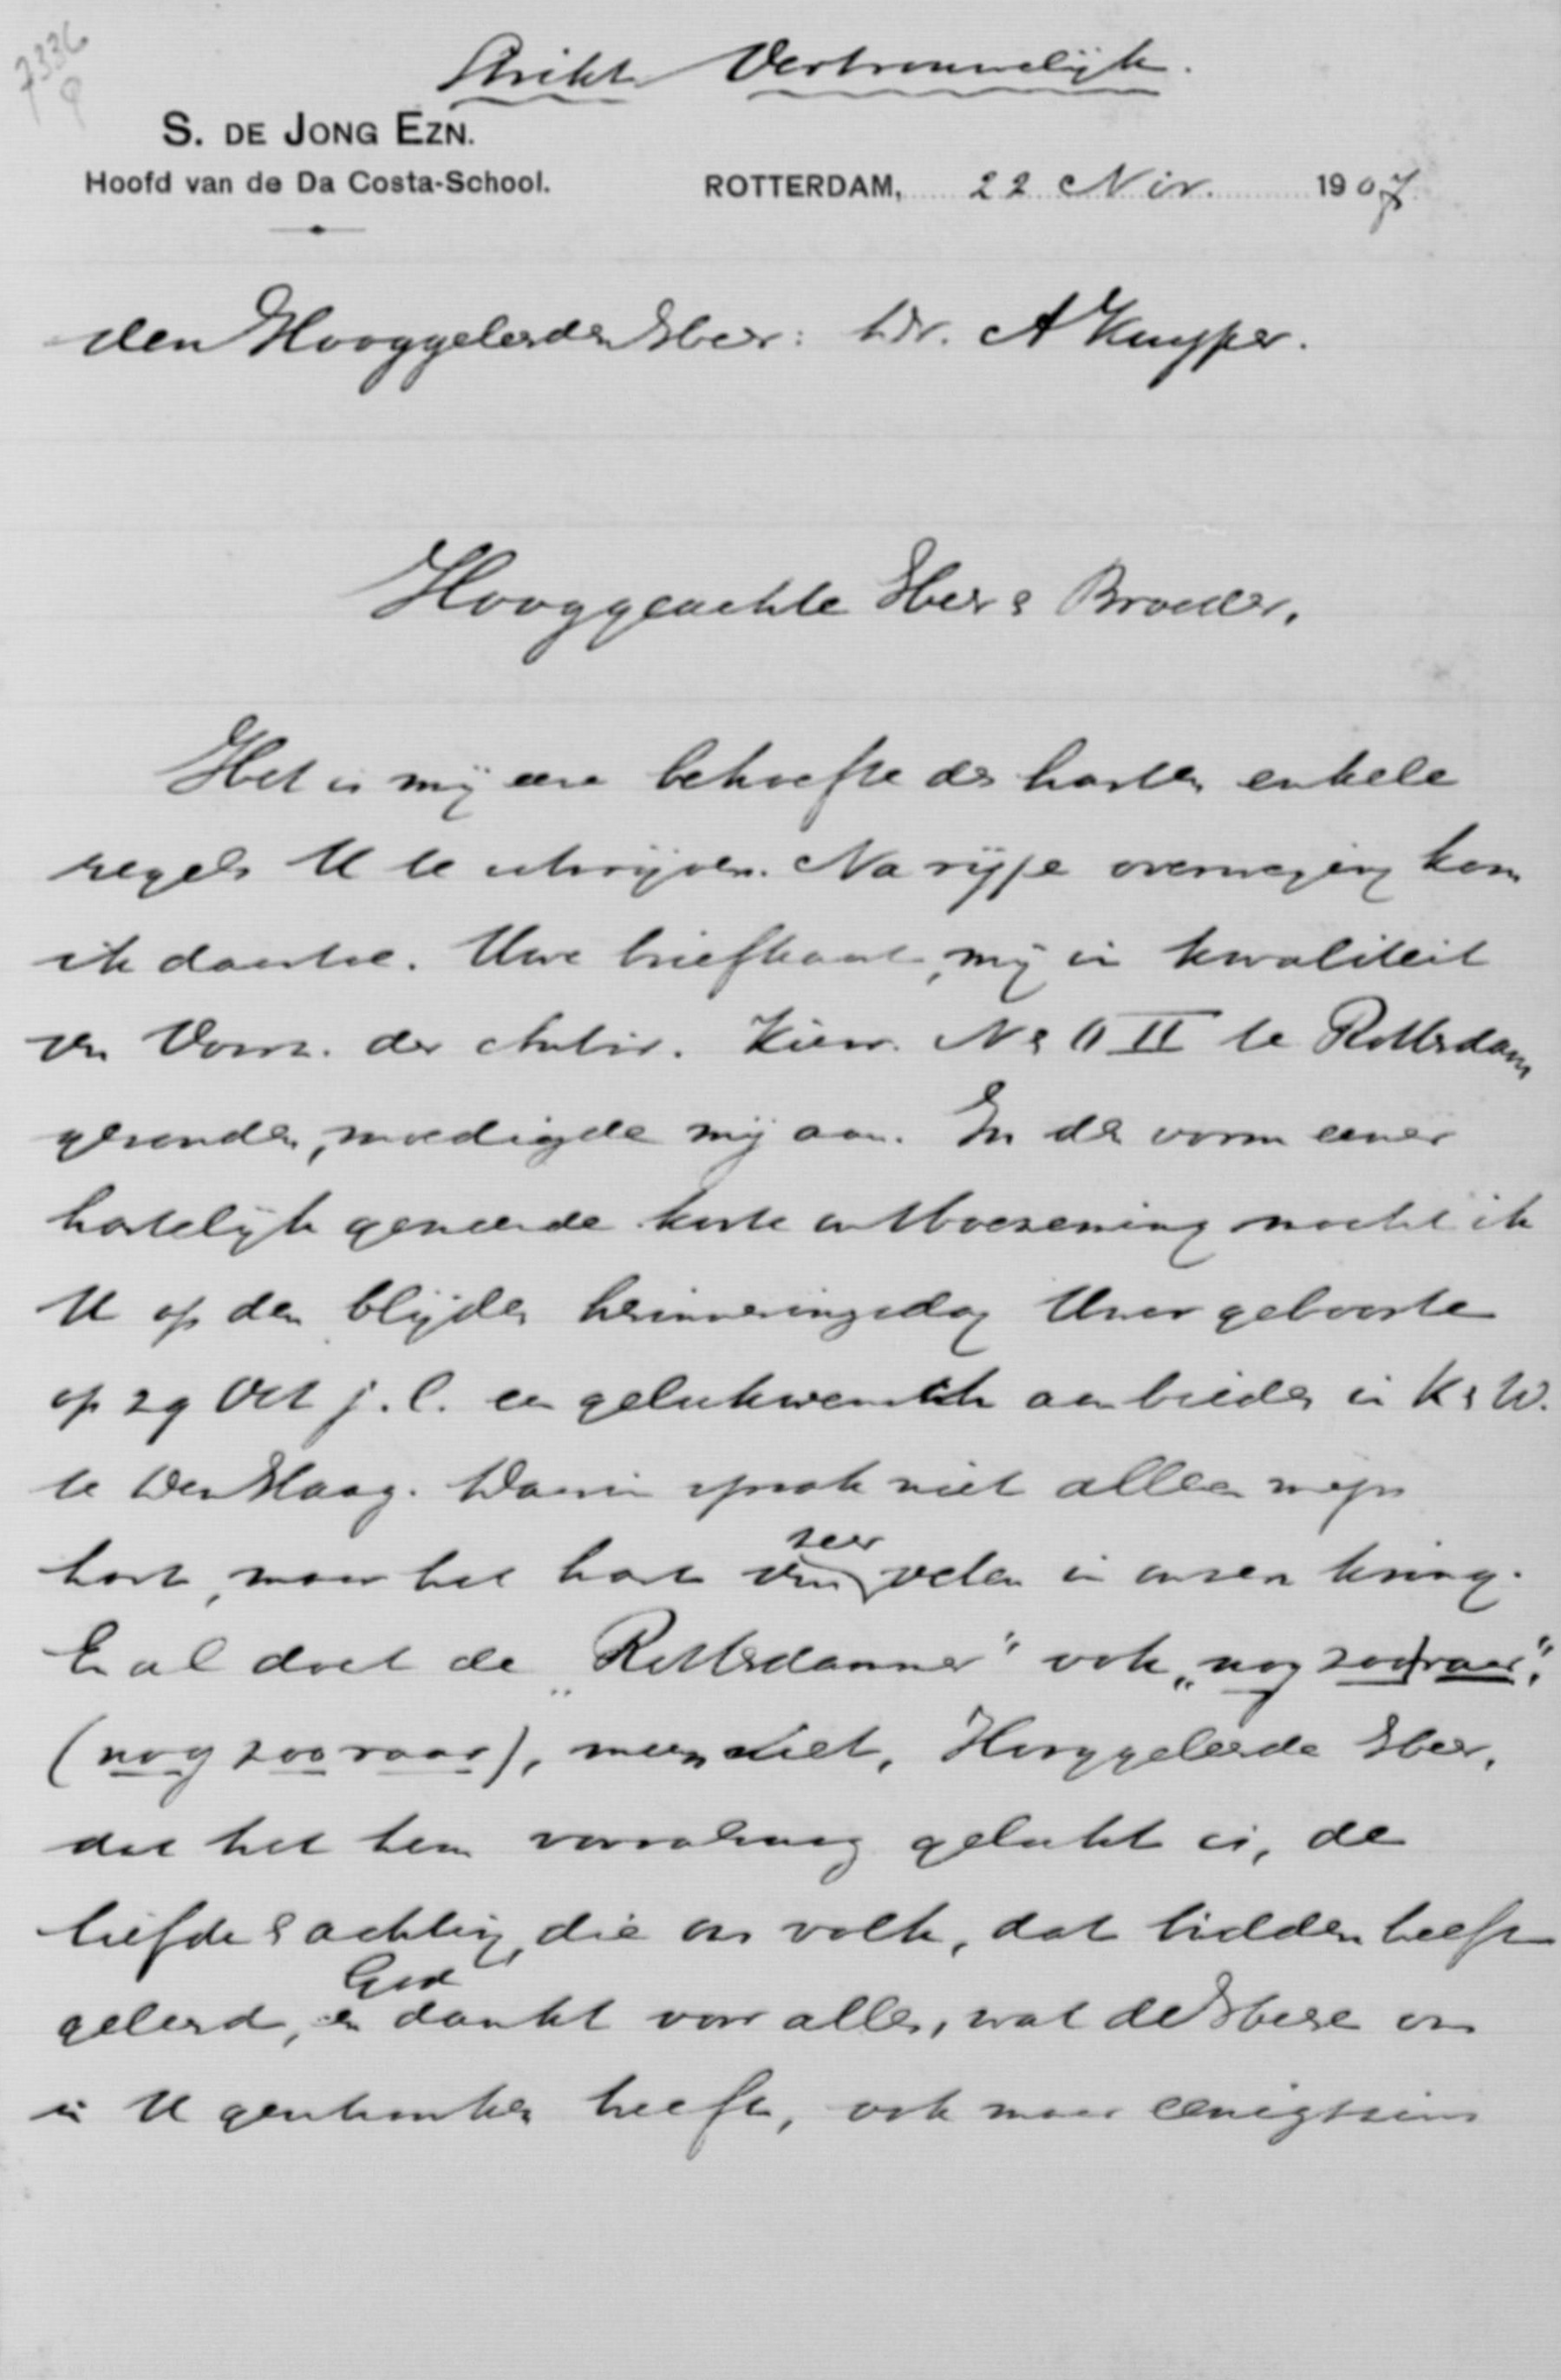 7336
Strikt Vertrouwelijk.
S. DE JONG EZN.
Hoofd van de Da Costa-School.
ROTTERDAM, 22 Nov. 1907
den Hooggeleerden Heer: Dr. A Kuyper.
Hooggeachte Heer & Broeder,
Het is mij eene behoefte des harten enkele
regels U te schrijven. Na rijpe overweging kom
ik daartoe. Uwe briefkaart, mij in kwaliteit
van Voorz. der Antir. Kiesv. N & O II te Rotterdam
gezonden, moedigde mij aan. In den vorm eener
hartelijk gemeende korte ontboezeming mocht ik
U op den blijden herinneringsdag Uwer geboorte
op 29 Oct j.l. een gelukwensch aanbieden in K & W.
te Den Haag. Daarin sprak niet alleen mijn
hart, maar het hart van zeer velen in onzen kring.
En al doet de „Rotterdammer" ook „nog zoo raar",
(nog zoo raar), meen niet, Hooggeleerde Heer,
dat het hem vooralsnog gelukt is, de
liefde & achting, die ons volk, dat bidden heeft
geleerd, en God dankt voor alles, wat de Heere ons
in U geschonken heeft, ook maar eenigszins